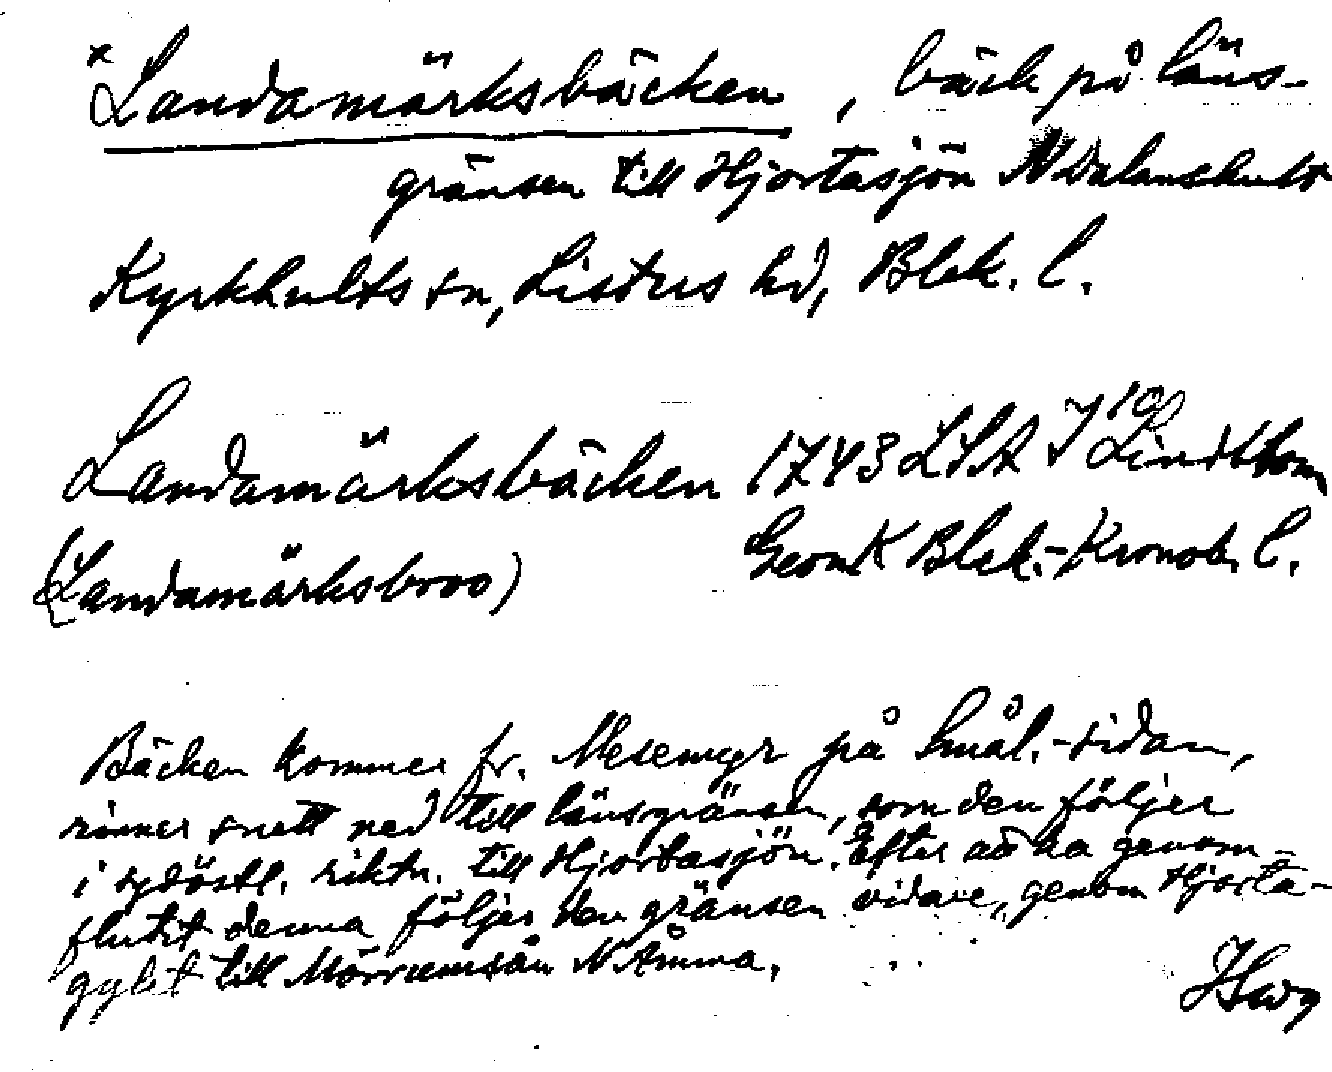 × Landamärksbäcken, bäck på läns-
gränsen till Hjortasjön N Dalanshult
Kyrkhults sn, Listers hd, Blek. l.
Landamärksbäcken 1743 LSA J 10
(Landamärksbroo) GeomK Blek.-Kronob. l.
Bäcken kommer fr. Mesemyr på Smål.-sidan,
rinner snett ned till länsgränsen, som den följer
i sydöstl. riktn. till Hjortasjön. Efter att ha genom-
flutit denna följer den gränsen vidare, genom Hjorta-
gylet till Mörrumsån N Åmma.